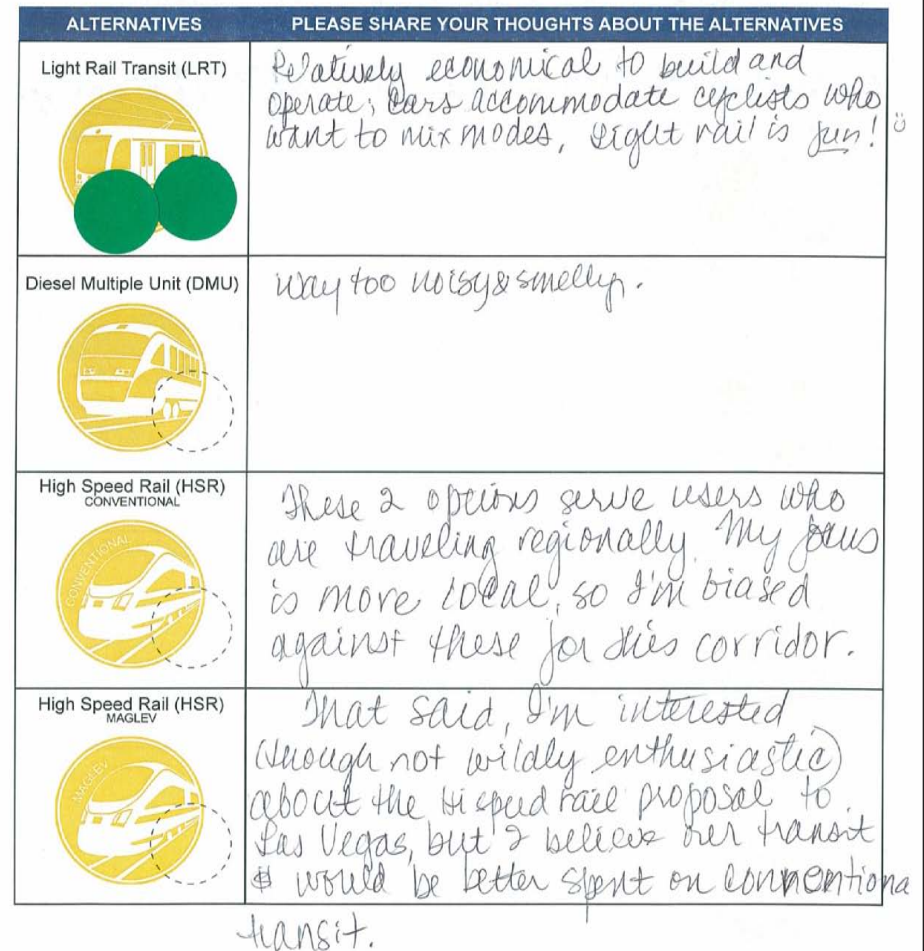 ALTERNATIVES
PLEASE SHARE YOUR THOUGHTS ABOUT THE ALTERNATIVES
Light Rail Transit (LRT)
Relatively economical to build and
operate; cars accommodate cyclists who
want to mix modes, Light rail is fun!
Diesel Multiple Unit (DMU)
Way too noisy & smelly.
High Speed Rail (HSR)
CONVENTIONAL
CONVENTIONAL
These 2 options serve users who
are traveling regionally. My focus
is more local, so I'm biased
against these for this corridor.
High Speed Rail (HSR)
MAGLEV
MAGLEV
That said, I'm interested
(though not wildly enthusiastic)
about the Hi speed rail proposal to
Las Vegas, but I believe our transit
$ would be better spent on conventiona
transit.